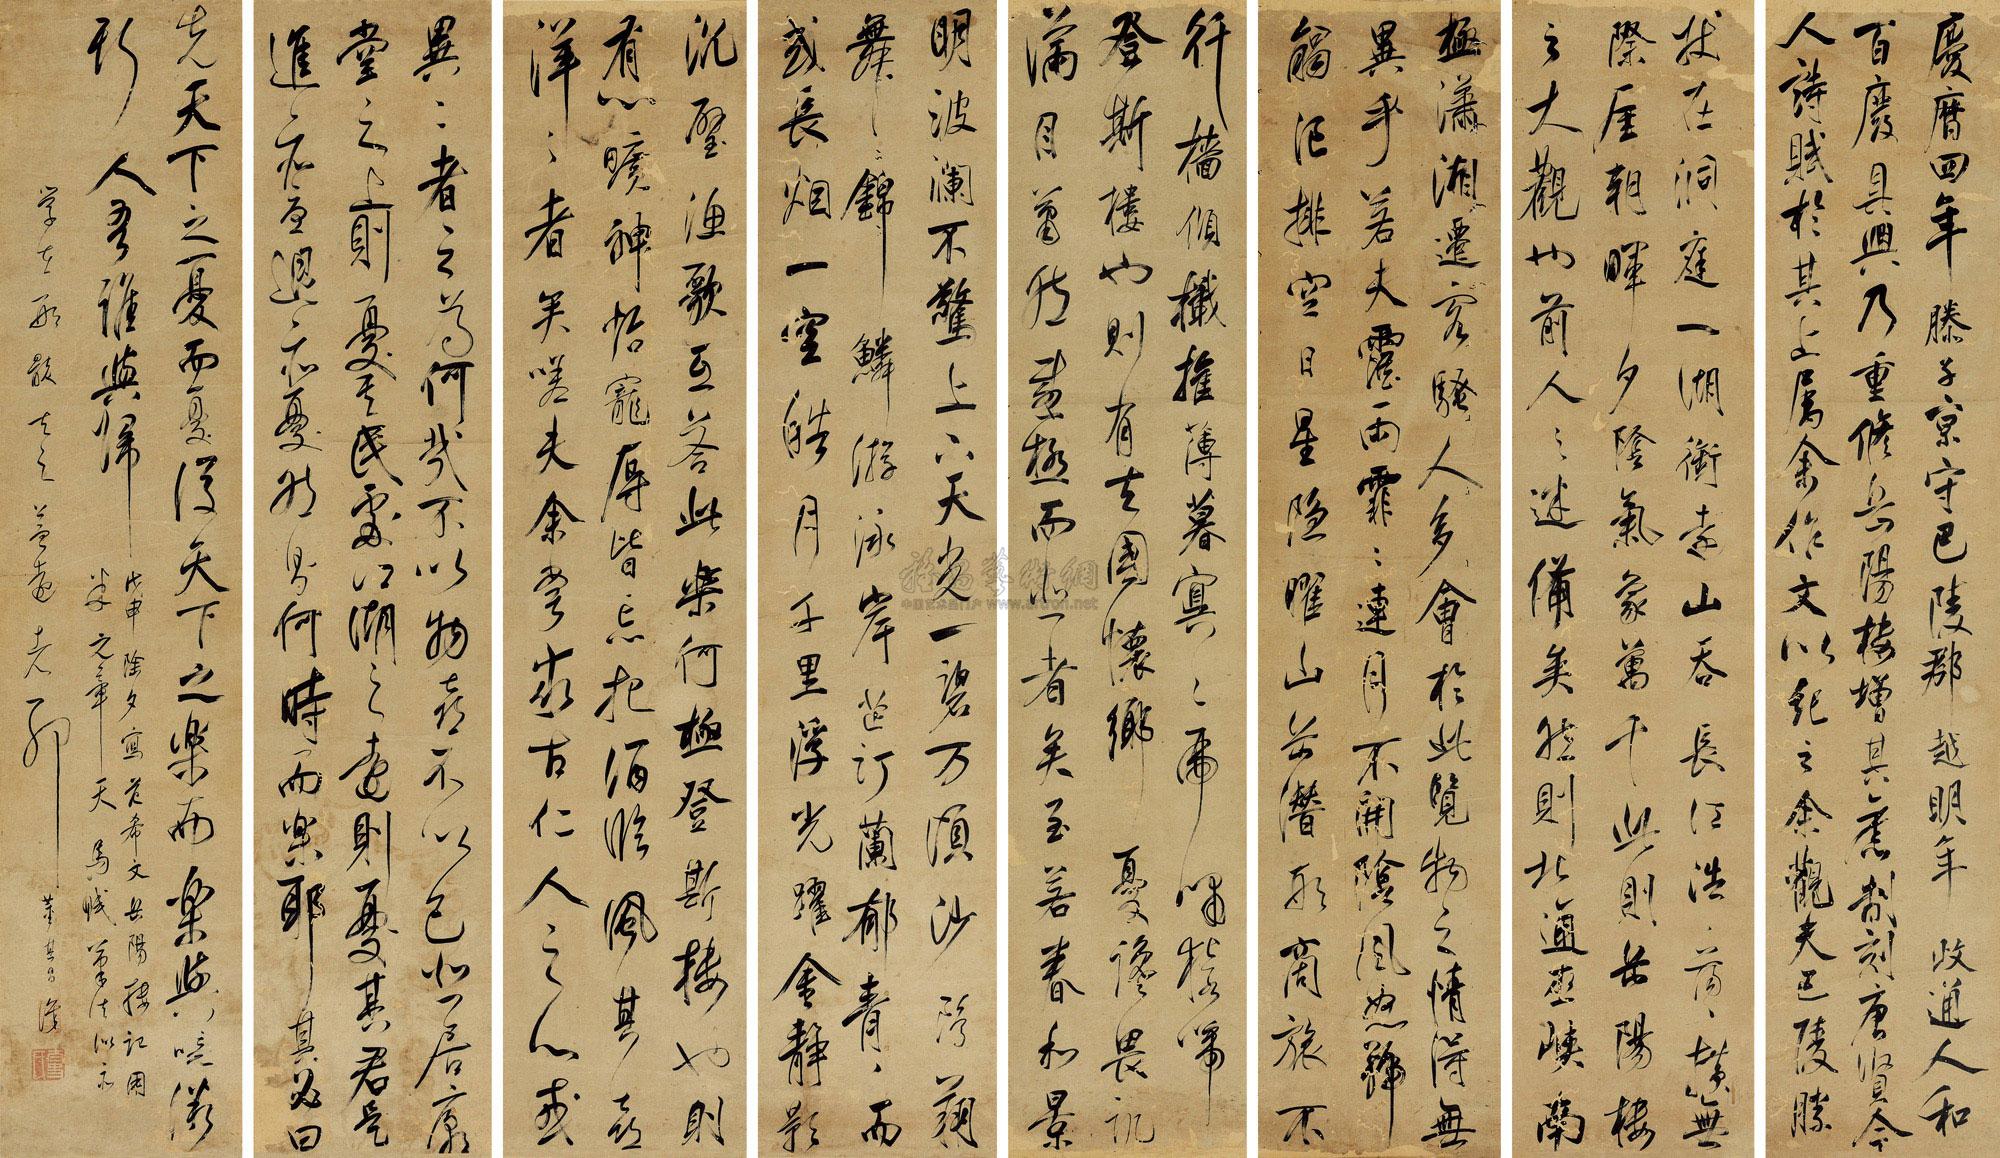 慶曆四年滕子京守巴陵郡越明年政通人和
百廢具興乃重修岳陽樓增其舊制刻唐賢今
人詩賦於其上屬余作文以紀之余觀夫巴陵勝
狀在洞庭一湖銜遠山吞長江浩〻蕩〻橫無
際厓朝暉夕陰氣象萬千此則岳陽樓
之大觀也前人之述備矣然則北通巫峽南
極瀟湘遷客騷人多會於此覽物之情得無
異乎若夫霪雨霏〻連月不開陰風怒號
排空日星隱曜山岳潛形商旅不
行檣傾檝摧薄暮冥〻虎嘯猿啼
登斯樓也則有去國懷鄉憂讒畏譏
滿目蕭然感極而悲者矣至若春和景
明波瀾不驚上下天光一碧万頃沙鷗翔
舞〻錦鱗游泳岸芷汀蘭郁青〻而
或長烟一空皓月千里浮光躍金靜影
沉璧漁歌互答此樂何極登斯樓也則
有心曠神怡寵辱皆忘把酒臨風其喜
洋〻者矣嗟夫余嘗求古仁人之心或
異二者之為何哉不以物喜不以己悲居廟
堂之上則憂其民處江湖之遠則憂其君是
進亦憂退亦憂然則何時而樂耶其必曰
先天下之憂而憂後天下之樂而樂與噫微
斯人吾誰與歸
戊申除夕寫范希文岳陽樓記用
米元章天馬賦筆法似不
學其形骸去之益遠
董其昌識
www.artron.net